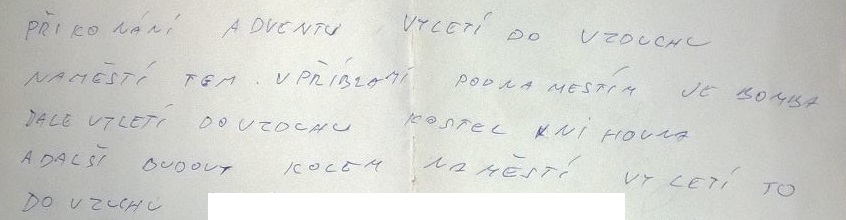 PŘI KONÁNÍ ADVENTU VYLETÍ DO VZDUCHU
NAMĚSTÍ TGM. V PŘÍBRAMI POD NAMESTÍM JE BOMBA
DALE VYLETÍ DO VZDUCHU KOSTEL KNIHOVNA
A DALŠÍ BUDOVY KOLEM NAMĚSTÍ VYLETÍ TO
DO VZUCHU